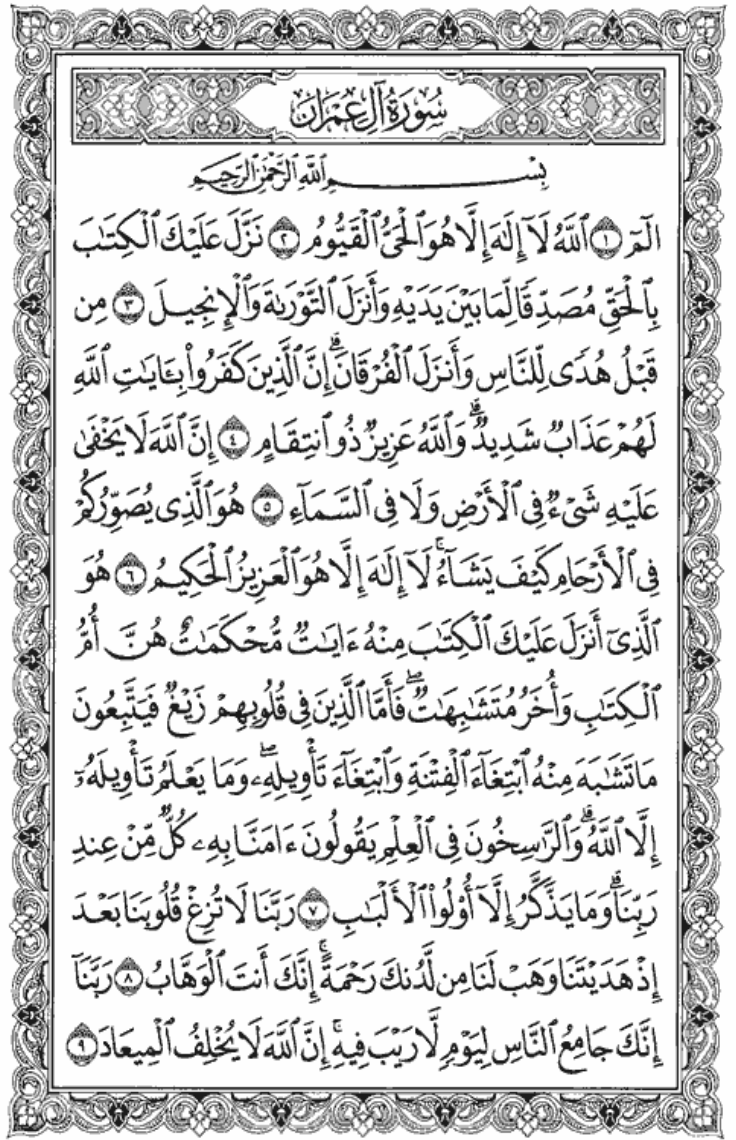 سُورَةُ آلِ عِمْرَانَ
بِسْمِ ٱللَّهِ ٱلرَّحْمَٰنِ ٱلرَّحِيمِ
الٓمٓ ١ ٱللَّهُ لَآ إِلَٰهَ إِلَّا هُوَ ٱلْحَىُّ ٱلْقَيُّومُ ٢ نَزَّلَ عَلَيْكَ ٱلْكِتَٰبَ
بِٱلْحَقِّ مُصَدِّقًا لِّمَا بَيْنَ يَدَيْهِ وَأَنزَلَ ٱلتَّوْرَىٰةَ وَٱلْإِنجِيلَ ٣ مِن
قَبْلُ هُدًى لِّلنَّاسِ وَأَنزَلَ ٱلْفُرْقَانَۗ إِنَّ ٱلَّذِينَ كَفَرُوا۟ بِـَٔايَٰتِ ٱللَّهِ
لَهُمْ عَذَابٌ شَدِيدٌۗ وَٱللَّهُ عَزِيزٌ ذُو ٱنتِقَامٍ ٤ إِنَّ ٱللَّهَ لَا يَخْفَىٰ
عَلَيْهِ شَىْءٌ فِى ٱلْأَرْضِ وَلَا فِى ٱلسَّمَآءِ ٥ هُوَ ٱلَّذِى يُصَوِّرُكُمْ
فِى ٱلْأَرْحَامِ كَيْفَ يَشَآءُۚ لَآ إِلَٰهَ إِلَّا هُوَ ٱلْعَزِيزُ ٱلْحَكِيمُ ٦ هُوَ
ٱلَّذِىٓ أَنزَلَ عَلَيْكَ ٱلْكِتَٰبَ مِنْهُ ءَايَٰتٌ مُّحْكَمَٰتٌ هُنَّ أُمُّ
ٱلْكِتَٰبِ وَأُخَرُ مُتَشَٰبِهَٰتٌۖ فَأَمَّا ٱلَّذِينَ فِى قُلُوبِهِمْ زَيْغٌ فَيَتَّبِعُونَ
مَا تَشَٰبَهَ مِنْهُ ٱبْتِغَآءَ ٱلْفِتْنَةِ وَٱبْتِغَآءَ تَأْوِيلِهِۦۖ وَمَا يَعْلَمُ تَأْوِيلَهُۥٓ
إِلَّا ٱللَّهُۗ وَٱلرَّٰسِخُونَ فِى ٱلْعِلْمِ يَقُولُونَ ءَامَنَّا بِهِۦ كُلٌّ مِّنْ عِندِ
رَبِّنَاۗ وَمَا يَذَّكَّرُ إِلَّآ أُو۟لُوا۟ ٱلْأَلْبَٰبِ ٧ رَبَّنَا لَا تُزِغْ قُلُوبَنَا بَعْدَ
إِذْ هَدَيْتَنَا وَهَبْ لَنَا مِن لَّدُنكَ رَحْمَةًۚ إِنَّكَ أَنتَ ٱلْوَهَّابُ ٨ رَبَّنَآ
إِنَّكَ جَامِعُ ٱلنَّاسِ لِيَوْمٍ لَّا رَيْبَ فِيهِۚ إِنَّ ٱللَّهَ لَا يُخْلِفُ ٱلْمِيعَادَ ٩